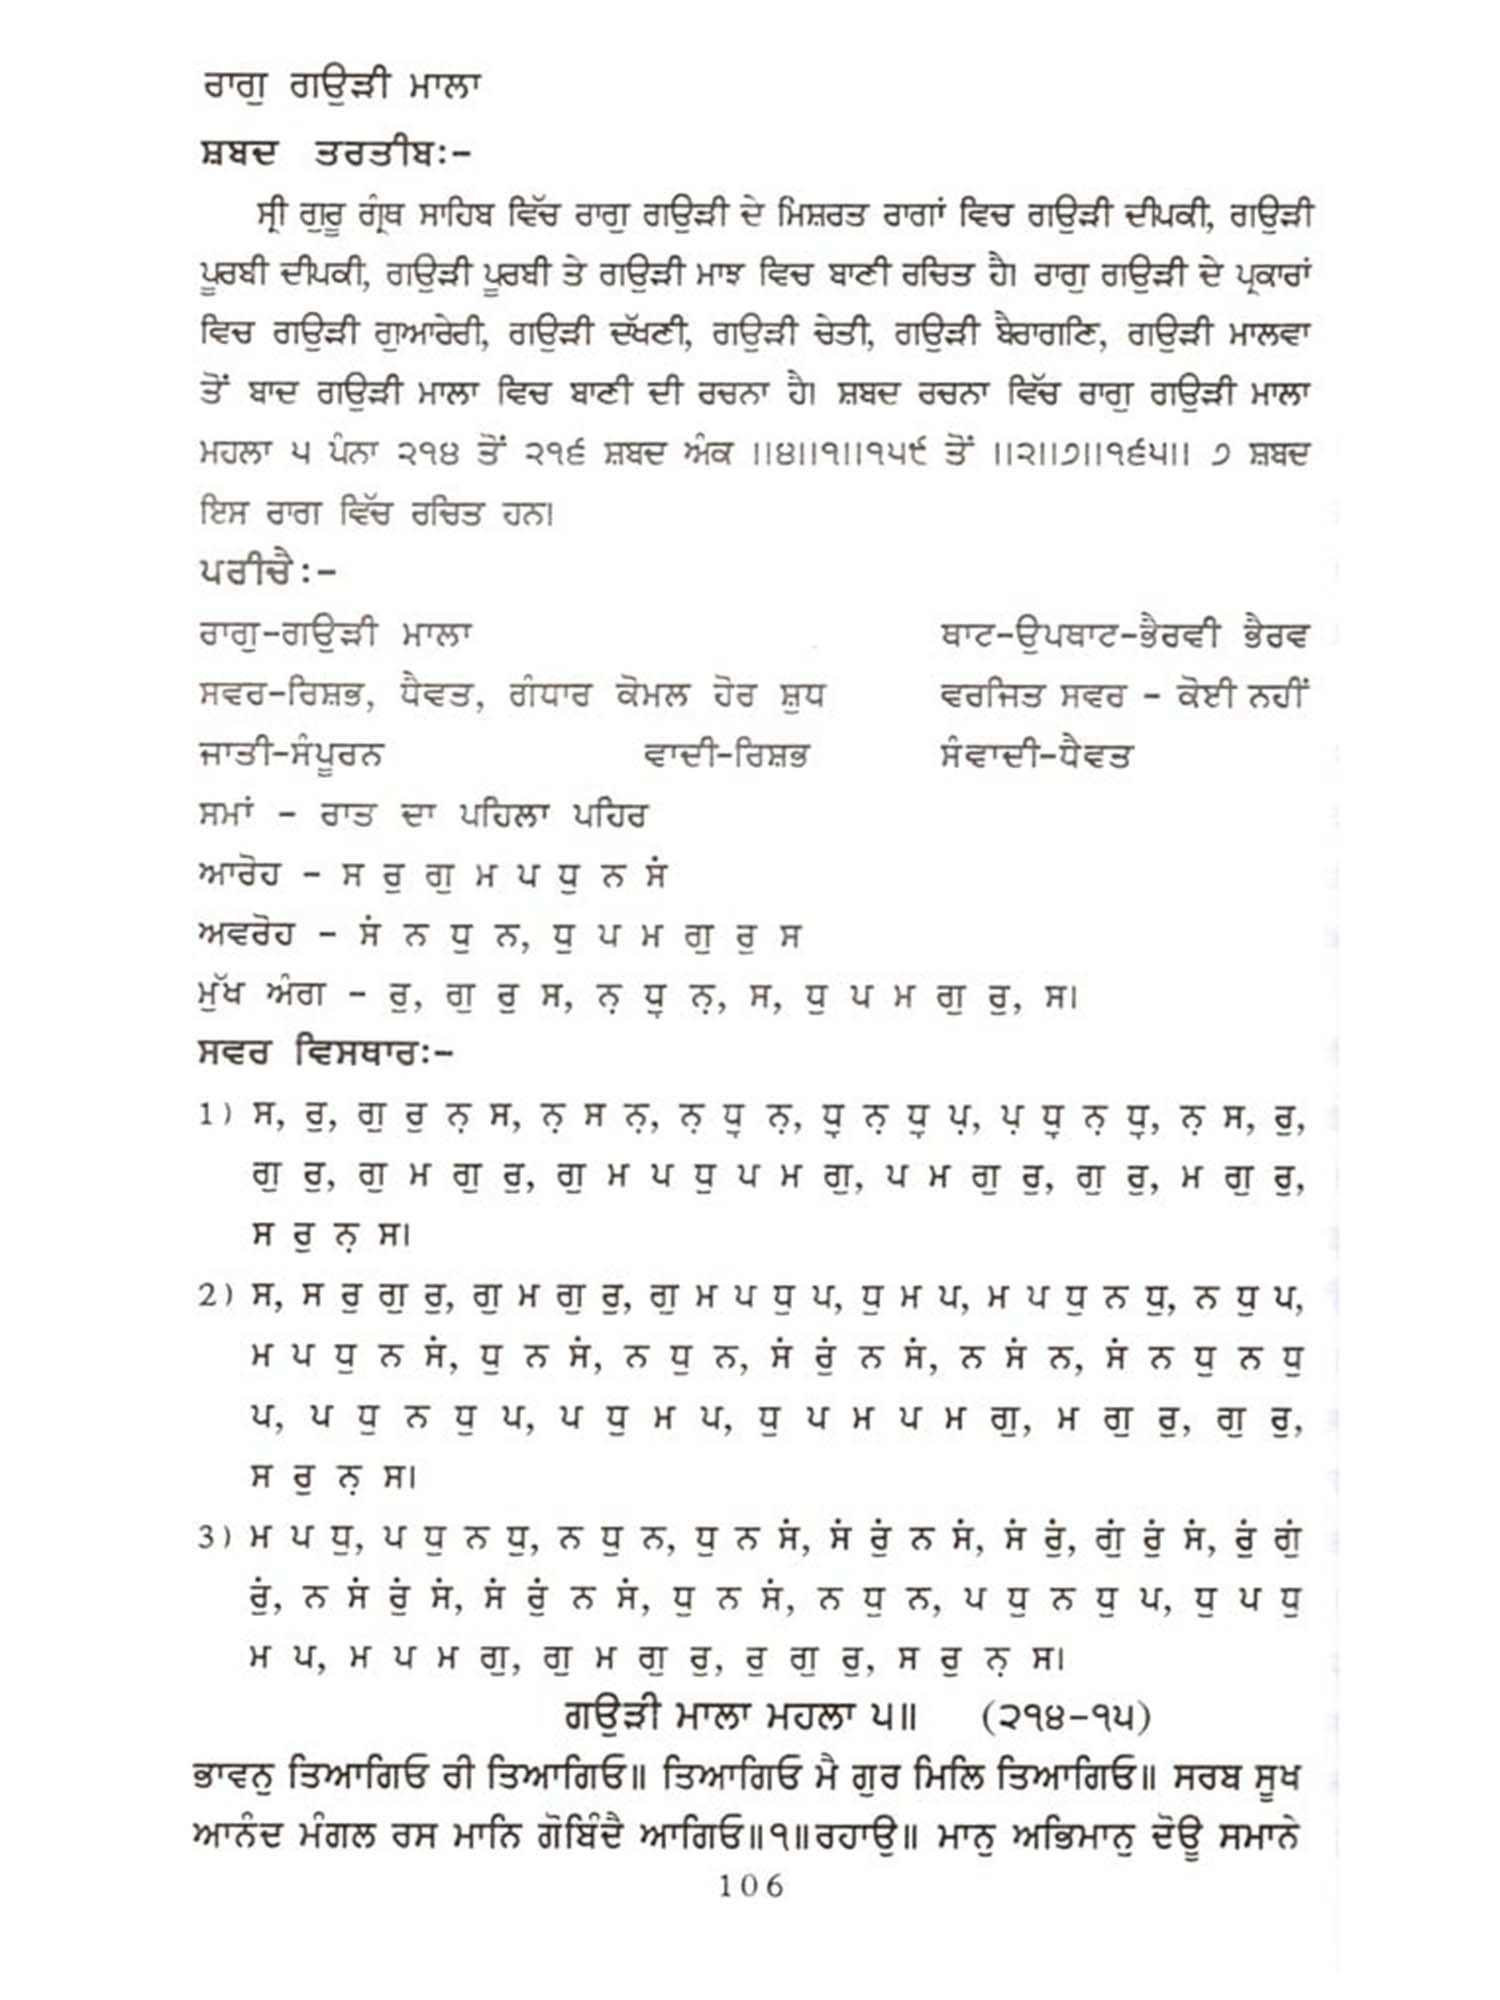 ਰਾਗੁ ਗਉੜੀ ਮਾਲਾ
ਸ਼ਬਦ ਤਰਤੀਬ:-
ਸ੍ਰੀ ਗੁਰੂ ਗ੍ਰੰਥ ਸਾਹਿਬ ਵਿੱਚ ਰਾਗੁ ਗਉੜੀ ਦੇ ਮਿਸ਼ਰਤ ਰਾਗਾਂ ਵਿਚ ਗਉੜੀ ਦੀਪਕੀ, ਗਉੜੀ
ਪੂਰਬੀ ਦੀਪਕੀ, ਗਉੜੀ ਪੂਰਬੀ ਤੇ ਗਉੜੀ ਮਾਝ ਵਿਚ ਬਾਣੀ ਰਚਿਤ ਹੈ। ਰਾਗੁ ਗਉੜੀ ਦੇ ਪ੍ਰਕਾਰਾਂ
ਵਿਚ ਗਉੜੀ ਗੁਆਰੇਰੀ, ਗਉੜੀ ਦੱਖਣੀ, ਗਉੜੀ ਚੇਤੀ, ਗਉੜੀ ਬੈਰਾਗਣਿ, ਗਉੜੀ ਮਾਲਵਾ
ਤੋਂ ਬਾਦ ਗਉੜੀ ਮਾਲਾ ਵਿਚ ਬਾਣੀ ਦੀ ਰਚਨਾ ਹੈ। ਸ਼ਬਦ ਰਚਨਾ ਵਿੱਚ ਰਾਗੁ ਗਉੜੀ ਮਾਲਾ
ਮਹਲਾ ੫ ਪੰਨਾ ੨੧੪ ਤੋਂ ੨੧੬ ਸ਼ਬਦ ਅੰਕ ।।੪।।੧।।੧੫੯ ਤੋਂ ।।੨।।੭।।੧੬੫।। ੭ ਸ਼ਬਦ
ਇਸ ਰਾਗ ਵਿੱਚ ਰਚਿਤ ਹਨ।
ਪਰੀਚੈ:-
ਰਾਗੁ-ਗਉੜੀ ਮਾਲਾ ਥਾਟ-ਉਪਥਾਟ-ਭੈਰਵੀ ਭੈਰਵ
ਸਵਰ-ਰਿਸ਼ਭ, ਧੈਵਤ, ਗੰਧਾਰ ਕੋਮਲ ਹੋਰ ਸ਼ੁਧ ਵਰਜਿਤ ਸਵਰ - ਕੋਈ ਨਹੀਂ
ਜਾਤੀ-ਸੰਪੂਰਨ ਵਾਦੀ-ਰਿਸ਼ਭ ਸੰਵਾਦੀ-ਧੈਵਤ
ਸਮਾਂ - ਰਾਤ ਦਾ ਪਹਿਲਾ ਪਹਿਰ
ਆਰੋਹ - ਸ ਰੁ ਗੁ ਮ ਪ ਧੁ ਨ ਸਂ
ਅਵਰੋਹ - ਸਂ ਨ ਧੁ ਨ, ਧੁ ਪ ਮ ਗੁ ਰੁ ਸ
ਮੁੱਖ ਅੰਗ - ਰੁ, ਗੁ ਰੁ ਸ, ਨ਼ ਧੁ਼ ਨ਼, ਸ, ਧੁ ਪ ਮ ਗੁ ਰੁ, ਸ।
ਸਵਰ ਵਿਸਥਾਰ:-
1) ਸ, ਰੁ, ਗੁ ਰੁ ਨ਼ ਸ, ਨ਼ ਸ ਨ਼, ਨ਼ ਧੁ਼ ਨ਼, ਧੁ਼ ਨ਼ ਧੁ਼ ਪ਼, ਪ਼ ਧੁ਼ ਨ਼ ਧੁ਼, ਨ਼ ਸ, ਰੁ,
ਗੁ ਰੁ, ਗੁ ਮ ਗੁ ਰੁ, ਗੁ ਮ ਪ ਧੁ ਪ ਮ ਗੁ, ਪ ਮ ਗੁ ਰੁ, ਗੁ ਰੁ, ਮ ਗੁ ਰੁ,
ਸ ਰੁ ਨ਼ ਸ।
2) ਸ, ਸ ਰੁ ਗੁ ਰੁ, ਗੁ ਮ ਗੁ ਰੁ, ਗੁ ਮ ਪ ਧੁ ਪ, ਧੁ ਮ ਪ, ਮ ਪ ਧੁ ਨ ਧੁ, ਨ ਧੁ ਪ,
ਮ ਪ ਧੁ ਨ ਸਂ, ਧੁ ਨ ਸਂ, ਨ ਧੁ ਨ, ਸਂ ਰੁਂ ਨ ਸਂ, ਨ ਸਂ ਨ, ਸਂ ਨ ਧੁ ਨ ਧੁ
ਪ, ਪ ਧੁ ਨ ਧੁ ਪ, ਪ ਧੁ ਮ ਪ, ਧੁ ਪ ਮ ਪ ਮ ਗੁ, ਮ ਗੁ ਰੁ, ਗੁ ਰੁ,
ਸ ਰੁ ਨ਼ ਸ।
3) ਮ ਪ ਧੁ, ਪ ਧੁ ਨ ਧੁ, ਨ ਧੁ ਨ, ਧੁ ਨ ਸਂ, ਸਂ ਰੁਂ ਨ ਸਂ, ਸਂ ਰੁਂ, ਗੁਂ ਰੁਂ ਸਂ, ਰੁਂ ਗੁਂ
ਰੁਂ, ਨ ਸਂ ਰੁਂ ਸਂ, ਸਂ ਰੁਂ ਨ ਸਂ, ਧੁ ਨ ਸਂ, ਨ ਧੁ ਨ, ਪ ਧੁ ਨ ਧੁ ਪ, ਧੁ ਪ ਧੁ
ਮ ਪ, ਮ ਪ ਮ ਗੁ, ਗੁ ਮ ਗੁ ਰੁ, ਰੁ ਗੁ ਰੁ, ਸ ਰੁ ਨ਼ ਸ।
ਗਉੜੀ ਮਾਲਾ ਮਹਲਾ ੫॥ (੨੧੪-੧੫)
ਭਾਵਨੁ ਤਿਆਗਿਓ ਰੀ ਤਿਆਗਿਓ॥ ਤਿਆਗਿਓ ਮੈ ਗੁਰ ਮਿਲਿ ਤਿਆਗਿਓ॥ ਸਰਬ ਸੂਖ
ਆਨੰਦ ਮੰਗਲ ਰਸ ਮਾਨਿ ਗੋਬਿੰਦੈ ਆਗਿਓ॥੧॥ਰਹਾਉ॥ ਮਾਨੁ ਅਭਿਮਾਨੁ ਦੋਊ ਸਮਾਨੇ
106